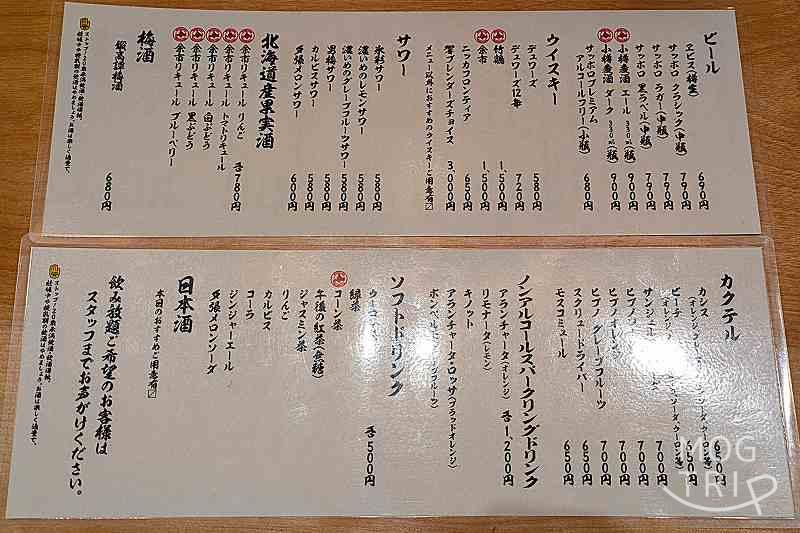 ビール
ヱビス(樽生) 690円
サッポロ クラシック(中瓶) 790円
サッポロ ラガー(中瓶) 790円
サッポロ 黒ラベル(中瓶) 790円
小樽麦酒 エール 330ml(瓶) 900円
小樽麦酒 ダーク 330ml(瓶) 900円
サッポロプレミアム
アルコールフリー(小瓶) 680円
ウイスキー
デュワーズ 580円
デュワーズ12年 720円
竹鶴 1,500円
余市 1,500円
ニッカフロンティア 650円
響ブレンダーズチョイス 3,000円
メニュー以外におすすめのウイスキーご用意有〼
サワー
氷彩サワー 580円
濃いめのレモンサワー 580円
濃いめのグレープフルーツサワー 580円
男梅サワー 580円
カルピスサワー 580円
夕張メロンサワー 600円
北海道産果実酒
余市リキュール りんご 各780円
余市リキュール トマトリキュール
余市リキュール 白ぶどう
余市リキュール 黒ぶどう
余市リキュール ブルーベリー
梅酒
紫高譚梅酒 680円
ストップ!20歳未満飲酒・飲酒運転。
妊娠中や授乳期の飲酒はやめましょう。お酒は楽しく適量で。
カクテル
カシス 650円
ピーチ 650円
サンジェ 700円
ピブノ 700円
ピブノオレンジ 700円
ピブノ グレープフルーツ 700円
スクリュードライバー 650円
モスコミュール 650円
ノンアルコールスパークリングドリンク
アランチャータ(オレンジ) 各1,200円
リモナータ(レモン)
キノット
アランチャータ・ロッサ(ブラッドオレンジ)
ポンペルモ
ソフトドリンク
ウーロン 各500円
緑茶
コーン茶
午後の紅茶(無糖)
ジャスミン茶
りんご
カルピス
コーラ
ジンジャーエール
夕張メロンソーダ
日本酒
本日のおすすめご用意有〼
飲み放題ご希望のお客様は
スタッフまでお声がけください。
ストップ!20歳未満飲酒・飲酒運転。
妊娠中や授乳期の飲酒はやめましょう。お酒は楽しく適量で。
MOG
TRIP